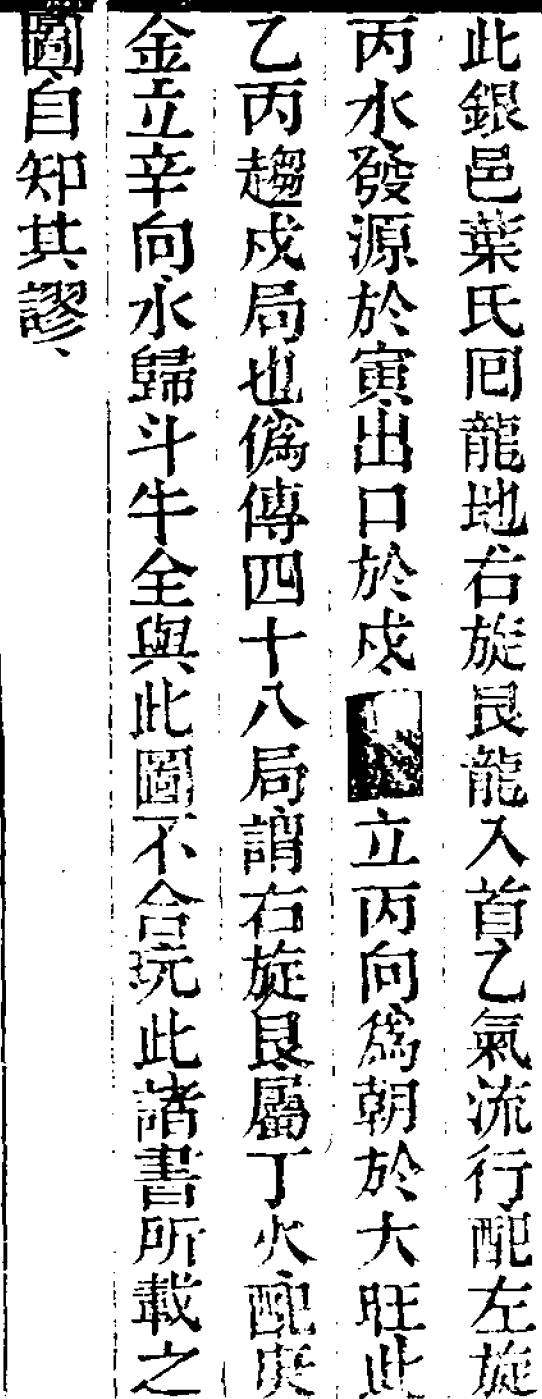 此銀邑葉氏囘龍地右旋艮龍入首乙氣流行配左旋
丙水發源於寅出口於戍立丙向爲朝於大旺此
乙丙趨戍局也僞傳四十八局謂右旋艮屬丁火配庚
金立辛向水歸斗牛全與此圖不合玩此諸書所載之
圖自知其謬、